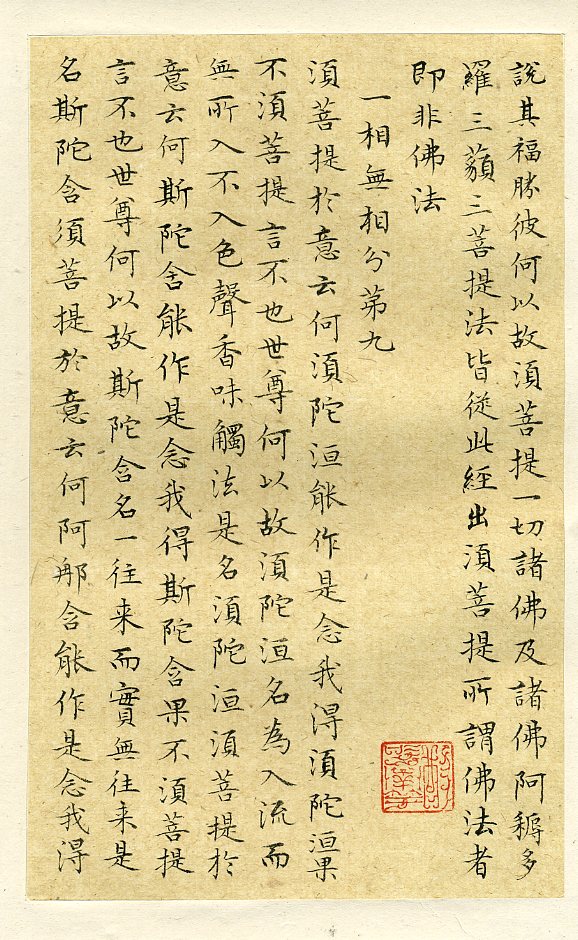 說其福勝彼何以故須菩提一切諸佛及諸佛阿耨多
羅三藐三菩提法皆從此經出須菩提所謂佛法者
即非佛法
一相無相分第九
須菩提於意云何須陀洹能作是念我得須陀洹果
不須菩提言不也世尊何以故須陀洹名為入流而
無所入不入色聲香味觸法是名須陀洹須菩提於
意云何斯陀含能作是念我得斯陀含果不須菩提
言不也世尊何以故斯陀含名一往来而實無往来是
名斯陀含須菩提於意云何阿那含能作是念我得